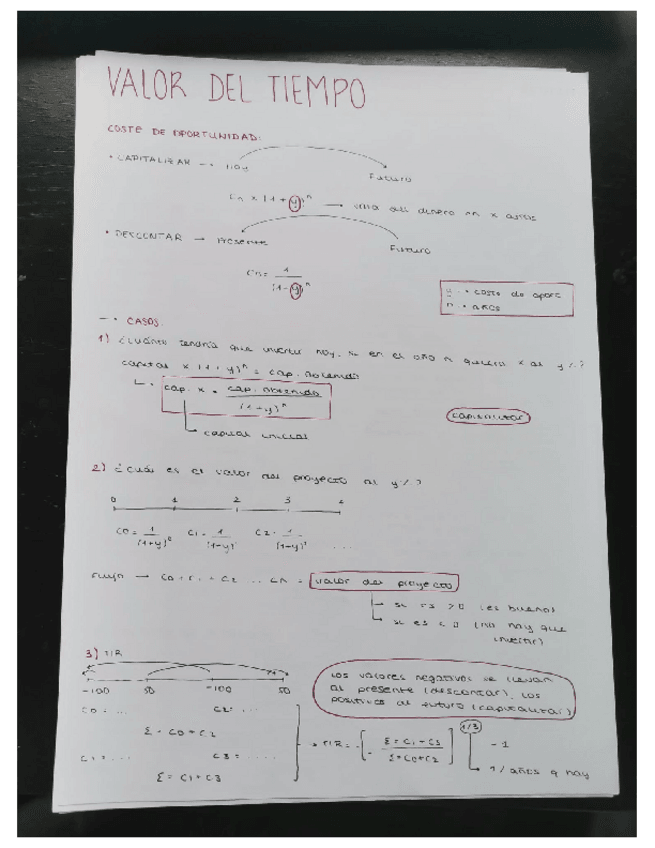 VALOR DEL TIEMPO
COSTE DE OPORTUNIDAD:
• CAPITALIZAR → HOY
Futuro
Cn × (1+y)ⁿ → dinero en x años
• DESCONTAR → Presente
Futuro
Cn = 1/(1-y)ⁿ
y → coste de oport
n → años
→ CASOS:
1) ¿Cuánto tendría que invertir hoy, si en el año n quiero x al y%?
capital × (1+y)ⁿ = cap. obtenido
cap. x = cap. obtenido/(1+y)ⁿ
capitalizar
capital inicial
2) ¿Cuál es el valor del proyecto al y%?
0 1 2 3 4
C0 = 1/(1+y)⁰ C1 = 1/(1-y)¹ C2 = 1/(1-y)² ....
Flujo → C0 + C1 + C2 ... Cn = valor del proyecto
si es > 0 (es bueno)
si es < 0 (no hay que
invertir)
3) TIR
-100 50 -100 50
Los valores negativos se llevan
al presente (descontar), los
positivos al futuro (capitalizar)
C0 = ... C2 = ....
Σ = C0 + C2
C1 = ... C3 = .....
Σ = C1 + C3
→ TIR = [- Σ = C1 - C3 / Σ = C0 + C2]^1/3 - 1
1/años q hay